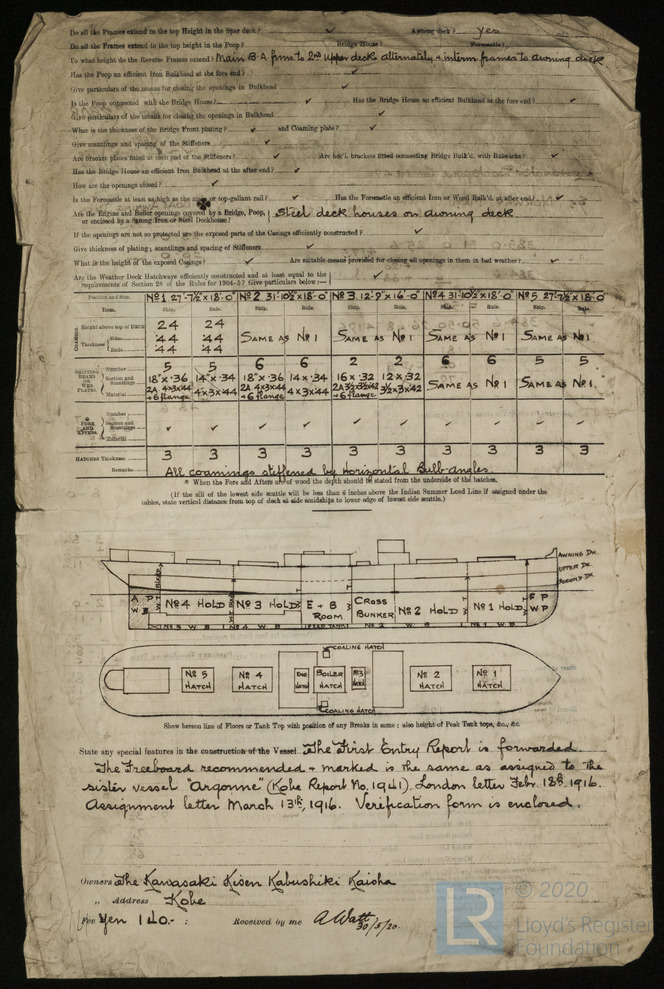 Do all the Frames extend to the top Height in the Spar deck? ✓ Awning deck? yes
Do all the Frames extend to the top height in the Poop? Bridge House? Forecastle?
To what height do the Reverse Frames extend? Main B.A frms to 2nd Upper deck alternately + interm frames to awning deck
Has the Poop an efficient Iron Bulkhead at the fore end? ✓
Give particulars of the means for closing the openings in Bulkhead ✓
Is the Poop connected with the Bridge House? ✓ Has the Bridge House an efficient Bulkhead at the fore end? ✓
Give particulars of the means for closing the openings in Bulkhead ✓
What is the thickness of the Bridge Front plating? ✓ and Coaming plate? ✓
Give scantlings and spacing of the Stiffeners ✓
Are bracket plates fitted at each end of the Stiffeners? ✓ Are hor'l brackets fitted connecting Bridge Bulk'd. with Bulwarks? ✓
Has the Bridge House an efficient Iron Bulkhead at the after end? ✓
How are the openings closed? ✓
Is the Forecastle at least as high as the main or top-gallant rail? ✓ Has the Forecastle an efficient Iron or Wood Bulk'd. at after end? ✓
Are the Engine and Boiler openings covered by a Bridge, Poop,
or enclosed by a Strong Iron or Steel Deckhouse? Steel deck houses on awning deck
If the openings are not so protected are the exposed parts of the Casings efficiently constructed? ✓
Give thickness of plating; scantlings and spacing of Stiffeners ✓
What is the height of the exposed Casings? ✓ Are suitable means provided for closing all openings in them in bad weather? ✓
Are the Weather Deck Hatchways efficiently constructed and at least equal to the
requirements of Section 28 of the Rules for 1904-5? Give particulars below:— ✓
Position and Size. No 1 27-7½"x18'-0" No 2 31-10½"x18'-0" No 3 12-9"x16'-0" No 4 31-10½"x18'-0" No 5 27-7½"x18'-0"
Item. Ship. Ship. Ship. Ship. Ship.
COAMING Height above top of DECK 24 24
Thickness Sides .44 .44 Same as No 1 Same as No 1 Same as No 1 Same as No 1
Ends .44 .44
SHIFTING BEAMS OR WEB PLATES. Number 5 5 6 6 2 2 6 6 5 5
Section and Scantlings 18"x.36 14"x.34 18"x.36 14x.34 16x.32 12x.32 Same as No 1 Same as No 1
Material 2A 4x3x44 4x3x.44 2A 4x3x44 4x3x.44 2A 3½x3½x42 3½x3x42
+6 flange +6 flange +6 flange
* FORE AND AFTERS. Number
Section and Scantlings ✓ ✓ ✓ ✓ ✓ ✓ ✓ ✓ ✓ ✓
Material
HATCHES Thickness 3 3 3 3 3 3 3 3 3 3
Remarks All coamings stiffened by Horizontal Bulb-angles.
* When the Fore and Afters are of wood the depth should be stated from the underside of the hatches.
(If the sill of the lowest side scuttle will be less than 6 inches above the Indian Summer Load Line if assigned under the
tables, state vertical distance from top of deck at side amidships to lower edge of lowest side scuttle.)
AWNING DK.
UPPER DK.
SECOND DK.
A P W B No 4 HOLD No 3 HOLD E + B ROOM CROSS BUNKER No 2 HOLD No 1 HOLD F P W P
No 5 W B FEED TANK No 2 W B No 1 W B
COALING HATCH
No 5 HATCH No 4 HATCH ENG HATCH BOILER HATCH No 3 HATCH No 2 HATCH No 1 HATCH
COALING HATCH
Show hereon line of Floors or Tank Top with position of any Breaks in same; also height of Peak Tank tops, &c., &c.
State any special features in the construction of the Vessel. The First Entry Report is forwarded.
The Freeboard recommended + marked is the same as assigned to the
sister vessel "Argonne" (Kobe Report No. 1941). London letter Febr. 18th, 1916.
Assignment letter March 13th, 1916. Verification form is enclosed.
Owners The Kawasaki Kisen Kabushiki Kaisha
„ Address Kobe
Fee Yen 140.- : Received by me A Watt
30/5/20.
LR © 2020
Lloyd's Register
Foundation